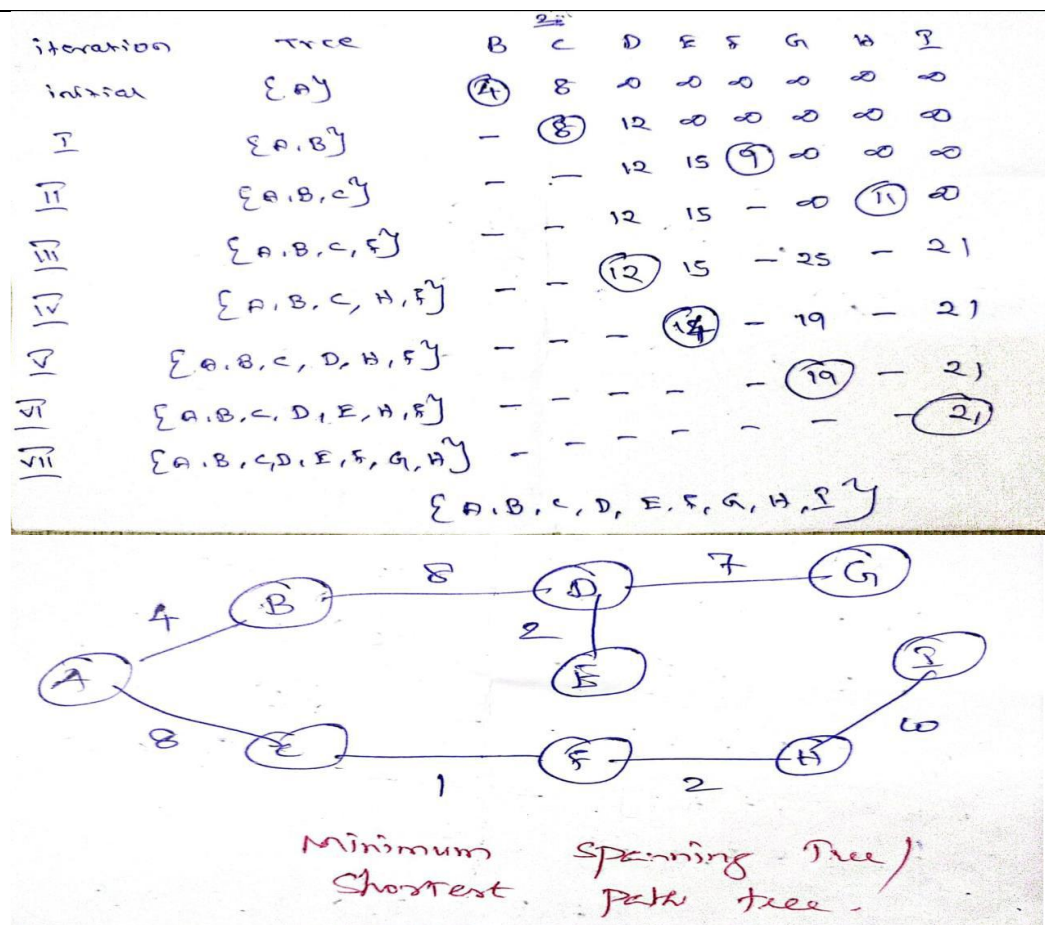 iteration Tree B C D E F G H I
initial {A} 4 8 ∞ ∞ ∞ ∞ ∞ ∞
I {A,B} - 8 12 ∞ ∞ ∞ ∞ ∞
II {A,B,C} - - 12 15 9 ∞ ∞ ∞
III {A,B,C,F} - - 12 15 - ∞ 11 ∞
IV {A,B,C,H,F} - - 12 15 - 25 - 21
V {A,B,C,D,H,F} - - - 14 - 19 - 21
VI {A,B,C,D,E,H,F} - - - - - 19 - 21
VII {A,B,C,D,E,F,G,H} - - - - - - - 21
{A,B,C,D,E,F,G,H,I}
4 B 8 D 7 G
2
A E I
8 C 1 F 2 H 10
Minimum Spanning Tree/
Shortest path tree.